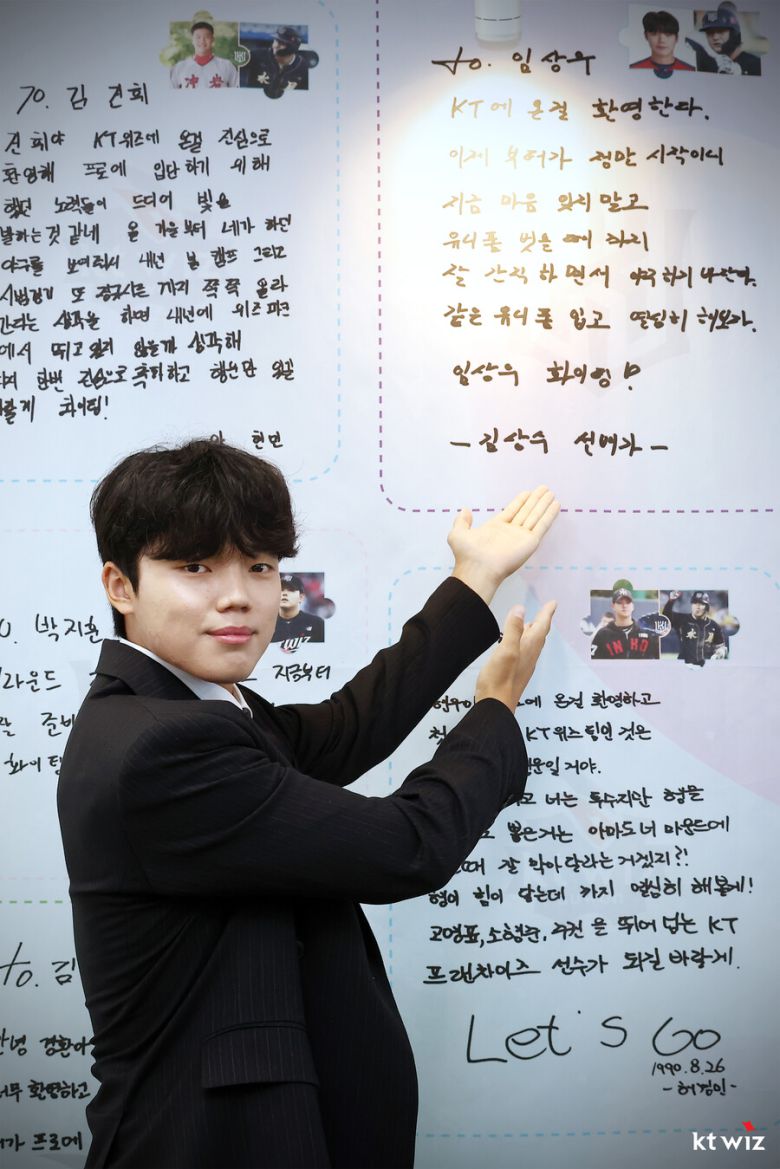 TO. 김 건희
건희야 KT위즈에 온걸 진심으로
환영해 프로에 입단하기 위해
했던 노력들이 드디어 빛을
발하는것 같네 올 가을부터 네가 하던
야구를 보여줘서 내년 봄 캠프 그리고
시범경기 또 정규시즌 까지 쭉쭉 올라
간다는 생각을 하면 내년에 위즈파크
에서 뛰고 있지 않을까 생각해
다시 한번 진심으로 축하하고
화이팅!
현민
to. 임상우
KT에 온걸 환영한다.
이제 부터가 정말 시작이니
지금 마음 잊지 말고
유니폼 벗을 때 까지
잘 간직 하면서 야구 하기 바란다.
같은 유니폼 입고 열심히 해보자.
임상우 화이팅!
- 김상수 선배가 -
박지훈
라운드
지금부터
준비
화이팅
INHO
온걸 환영하고
KT위즈 팀인 것은
일거야.
너는 투수지만 형을
뽑은거는 아마도 너 마운드에
때 잘 막아달라는 거겠지?!
형이 힘이 닿는데 까지 열심히 해볼게!
고영표, 소형준, 주권 을 뛰어 넘는 KT
프랜차이즈 선수가 되길 바랄게.
Let's Go
1990.8.26
- 허경민 -
to. 김
안녕 경환아
너무 환영하고
프로에
kt wiz